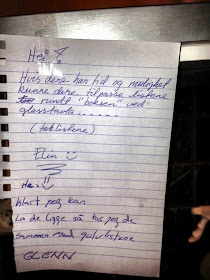 Hei
Hvis dere har tid og mulighet
kunne dere tilpasse listene
rundt "boksen" ved
glasstavla......
(taklistene)
Elin ☺
Hei
klart jeg kan
La de ligge så tar jeg de
sammen med gulvlistene
GLENN